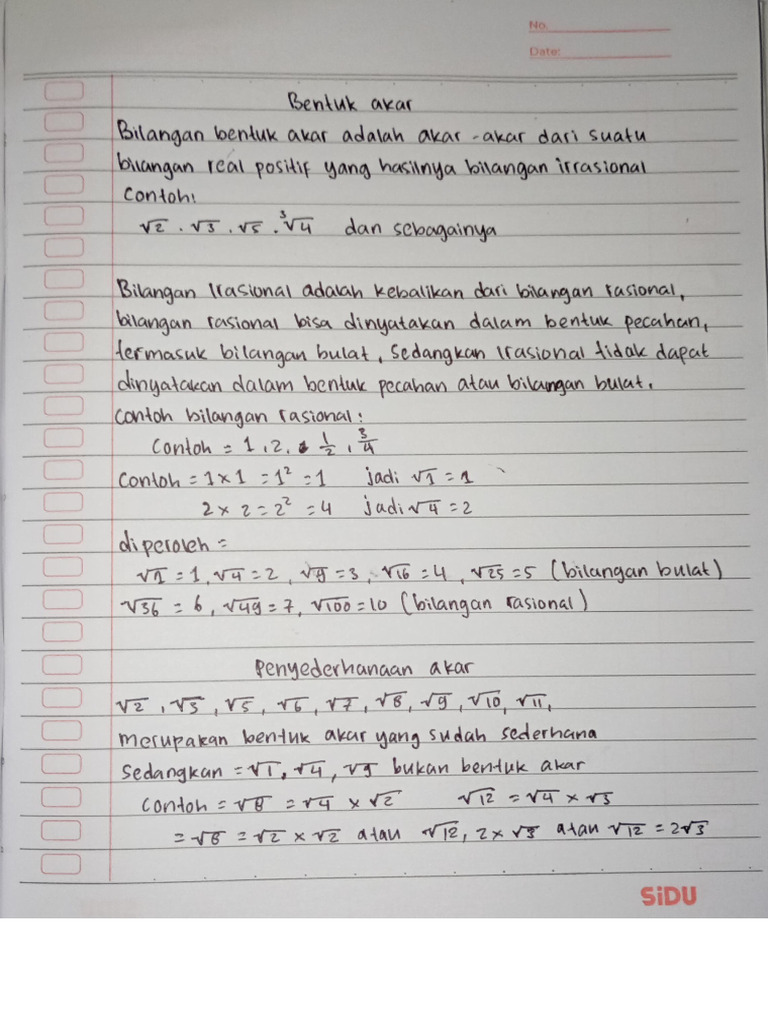 No.
Date:
Bentuk akar
Bilangan bentuk akar adalah akar-akar dari suatu
bilangan real positif yang hasilnya bilangan irrasional
Contoh:
√2 . √3 . √5 . ³√4 dan sebagainya
Bilangan Irasional adalah kebalikan dari bilangan rasional,
bilangan rasional bisa dinyatakan dalam bentuk pecahan,
termasuk bilangan bulat, Sedangkan Irasional tidak dapat
dinyatakan dalam bentuk pecahan atau bilangan bulat.
Contoh bilangan rasional:
Contoh = 1, 2, 1/2, 3/4
Contoh = 1 × 1 = 1² = 1 jadi √1 = 1
2 × 2 = 2² = 4 jadi √4 = 2
diperoleh =
√1 = 1, √4 = 2, √9 = 3, √16 = 4, √25 = 5 (bilangan bulat)
√36 = 6, √49 = 7, √100 = 10 (bilangan rasional)
Penyederhanaan akar
√2, √3, √5, √6, √7, √8, √9, √10, √11,
merupakan bentuk akar yang sudah sederhana
Sedangkan = √1, √4, √9 bukan bentuk akar
Contoh = √8 = √4 × √2 √12 = √4 × √3
= √8 = √2 × √2 atau √12, 2 × √3 atau √12 = 2√3
SiDU